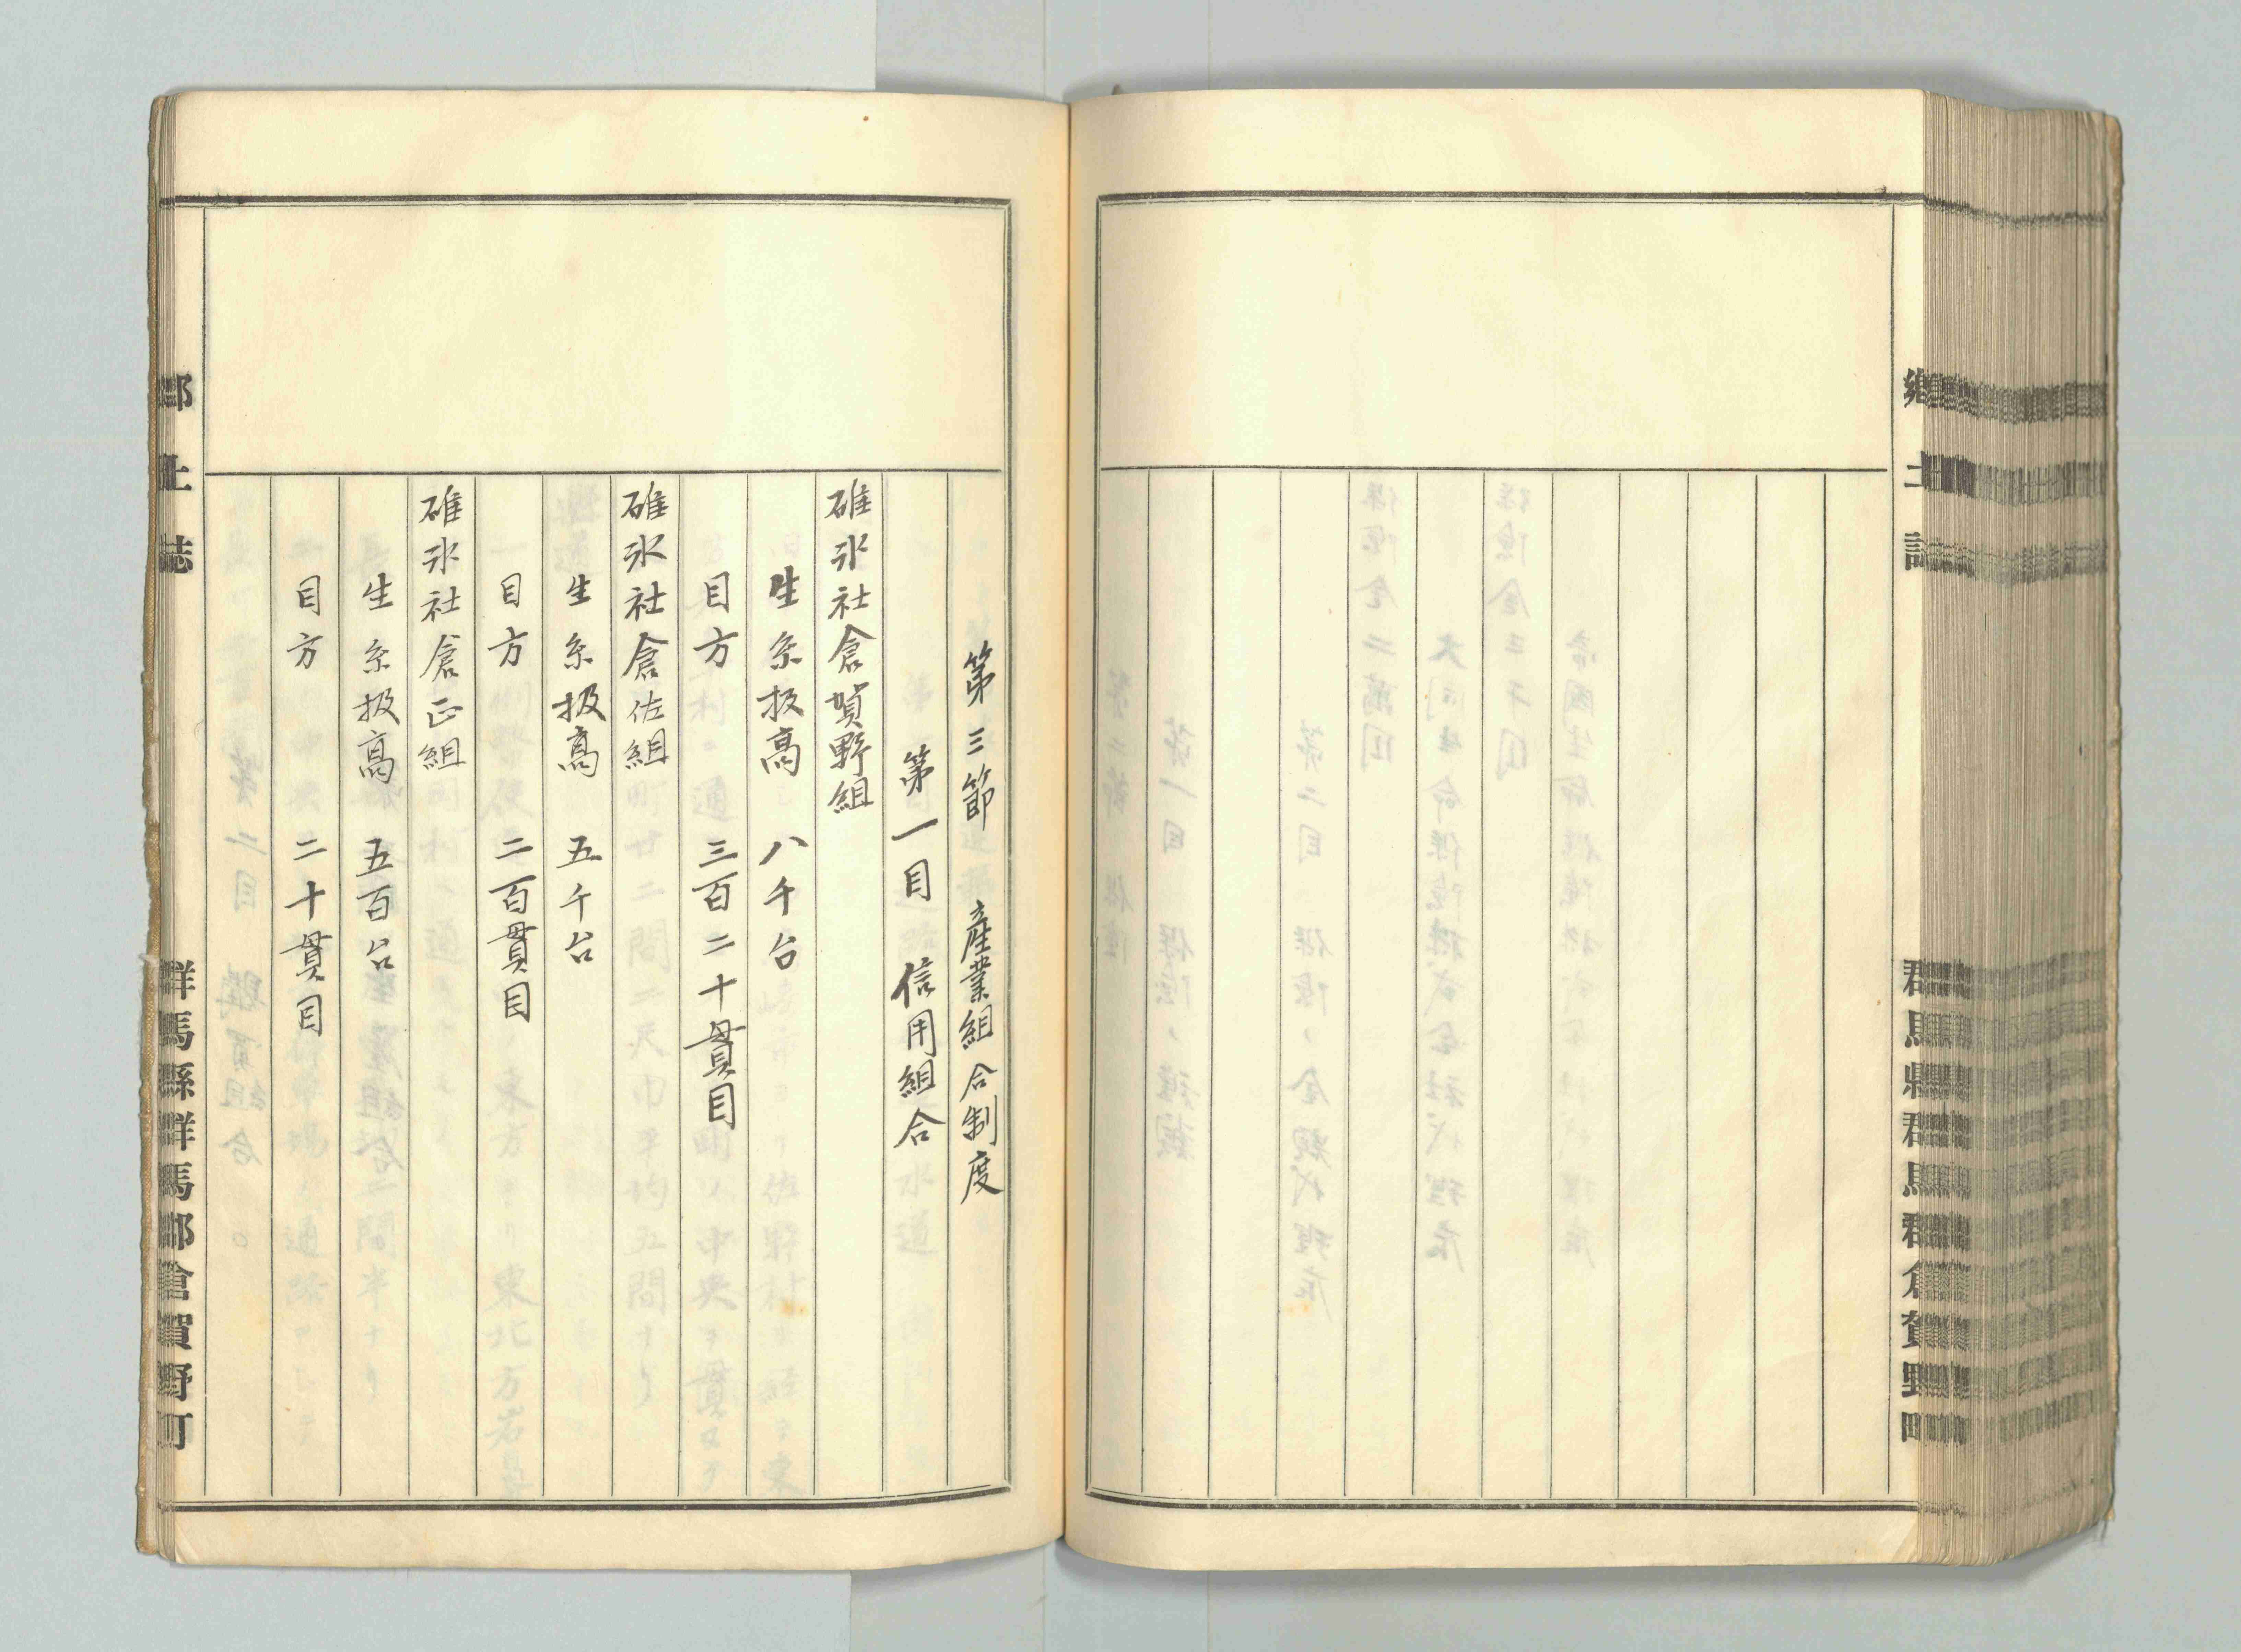 鄕土誌
群馬縣群馬郡倉賀野町
第三節 産業組合制度
第一目 信用組合
碓氷社倉賀野組
生糸扱高 八千台
目方 三百二十貫目
碓氷社倉佐組
生糸扱高 五千台
目方 二百貫目
碓氷社倉正組
生糸扱高 五百台
目方 二十貫目
郷土誌
群馬縣群馬郡倉賀野町